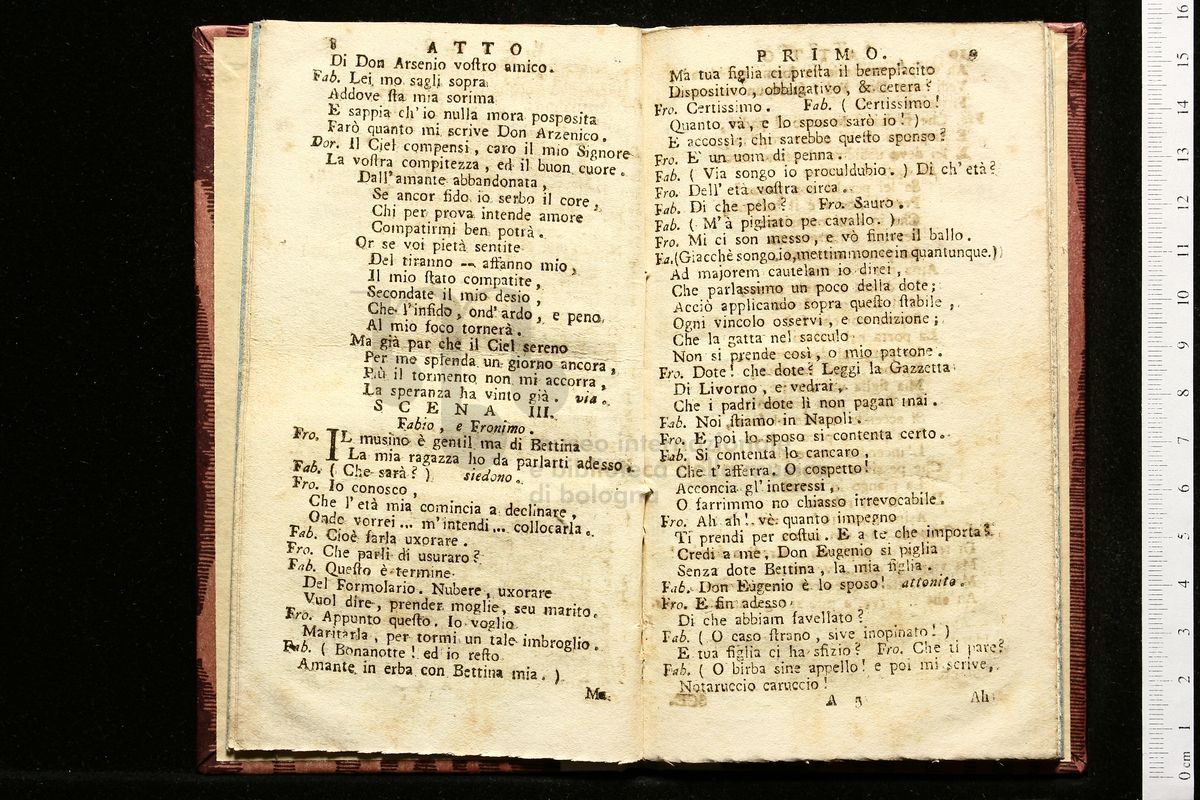 8 ATTO
Di Don Arsenio voſtro amico.
Fab. Lei mo sagli sopra
Addove ſta mia sorima
E sappia ch'io nulla mora posposita
Farò quanto mi scrive Don Arzenico.
Dor. Il Ciel compensi, caro il mio Signore
La voſtra compitezza, ed il buon cuore.
Dall'amante abbandonata,
Se ancor fido io serbo il core,
Chi per prova intende amore
Compatirmi ben potrà.
Or se voi pietà sentite
Del tiranno -- affanno mio,
Il mio ſtato compatite,
Secondate il mio desio,
Che l'infido, ond'ardo, e peno,
Al mio foco tornerà.
Ma già par che il Ciel sereno
Per me splenda un giorno ancora,
Più il tormento non mi accorra,
La speranza ha vinto già. via.
SCENA III.
Fabio, e Fronimo.
Fro. IL musino è gentil ma di Bettina
La mia ragazza ho da parlarti adesso.
Fab. ( Che sarà? ) siedono.
Fro. Io conosco,
Che l'età mia comincia a declinare,
Onde vorrei ... m'intendi ... collocarla.
Fab. Cioè farla uxorare.
Fro. Che parli di usuraro?
Fab. Queſto è termine
Del Formolario. Nubere, uxorare
Vuol dire, prender moglie, seu marito.
Fro. Appunto queſto. Io voglio
Maritarla, per tormi un tale imbroglio.
Fab. ( Bonanotte! ed io reſto
Amante in erba con Bettina mia. )
Ma
PRIMO. 9
Ma tua figlia ci preſta il beneplacito
Dispositivo, obbligativo, & cetera?
Fro. Certissimo. Fab. ( Certissimo!
Quanto và, e lo sposo sarò io! )
E accossì; chi sarebbe queſto sponso?
Fro. E' un uom di penna.
Fab. ( Via songo io proculdubio. ) Di ch'età?
Fro. Dell' età voſtra circa.
Fab. Di che pelo? Fro. Sauro.
Fab. ( M'à pigliato pe cavallo. )
Fro. Mi ci son messo, e vò finire il ballo.
Fa.(Giacchè songo io, mettimmonce in quantunque.)
Ad majorem cautelam io direi,
Che parlassimo un poco della dote;
Acciò applicando sopra queſto ſtabile,
Ogni vincolo osservi, e condizione;
Che la gatta nel sacculo
Non si prende così, o mio patrone.
Fro. Dote! che dote? Leggi la Gazzetta
Di Livorno, e vedrai,
Che i padri dote lì non pagan mai.
Fab. Noi ſtiamo in Napoli.
Fro. E poi lo sposo si contenta certo.
Fab. Si contenta lo cancaro,
Che t'afferra. O cospetto!
Acconcia gl'interessi,
O farrimmo no chiasso irrevocabile.
Fro. Ah ah! vè quanto impegno
Ti prendi per coſtui. E a te che importa?
Credi a me, Don Eugenio si piglia
Senza dote Bettina, la mia figlia.
Fab. Don Eugenio è lo sposo! attonito.
Fro. E fin adesso
Di che abbiam favellato?
Fab. ( O caso ſtrano, sive inopinato! )
E tua figlia ci ha sfizio? Fro. Che ti pare?
Fab. ( O birba sine appello! e poi mi scrive,
Notaruccio caruccio!
A 5 Ah